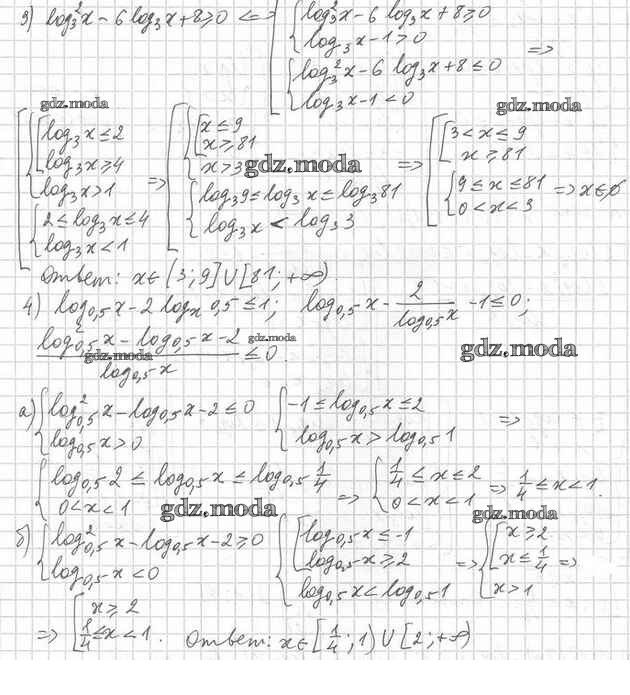 3) log₃²x - 6 log₃x + 8 ≥ 0 <=> [ { log₃²x - 6 log₃x + 8 ≥ 0
{ log₃x - 1 > 0
{ log₃²x - 6 log₃x + 8 ≤ 0
{ log₃x - 1 < 0 =>
gdz.moda
gdz.moda
[ { [ log₃x ≤ 2
log₃x ≥ 4
log₃x > 1
{ 2 ≤ log₃x ≤ 4
log₃x < 1
=> [ { [ x ≤ 9
x ≥ 81
x > 3
{ log₃9 ≤ log₃x ≤ log₃81
log₃x < log₃3
gdz.moda
=> [ [ 3 < x ≤ 9
x ≥ 81
{ 9 ≤ x ≤ 81
0 < x < 3 => x ∈ ∅
Ответ: x ∈ (3; 9] ∪ [81; +∞).
4) log₀,₅x - 2 logₓ0,5 ≤ 1; log₀,₅x - 2/log₀,₅x - 1 ≤ 0;
(log²₀,₅x - log₀,₅x - 2)/log₀,₅x ≤ 0.
gdz.moda
gdz.moda
gdz.moda
а) { log²₀,₅x - log₀,₅x - 2 ≤ 0
log₀,₅x > 0
{ -1 ≤ log₀,₅x ≤ 2
log₀,₅x > log₀,₅1 =>
{ log₀,₅2 ≤ log₀,₅x ≤ log₀,₅1/4
0 < x < 1
=> { 1/4 ≤ x ≤ 2
0 < x < 1 => 1/4 ≤ x < 1.
gdz.moda
gdz.moda
б) { log²₀,₅x - log₀,₅x - 2 ≥ 0
log₀,₅x < 0
{ [ log₀,₅x ≤ -1
log₀,₅x ≥ 2
log₀,₅x < log₀,₅1
=> { [ x ≥ 2
x ≤ 1/4
x > 1 =>
=> [ x ≥ 2
1/4 ≤ x < 1. Ответ: x ∈ [1/4; 1) ∪ [2; +∞)